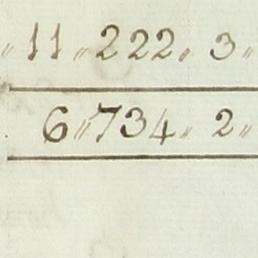 〃 11 〃 222 〃 3 〃
6 〃 734 〃 2 〃